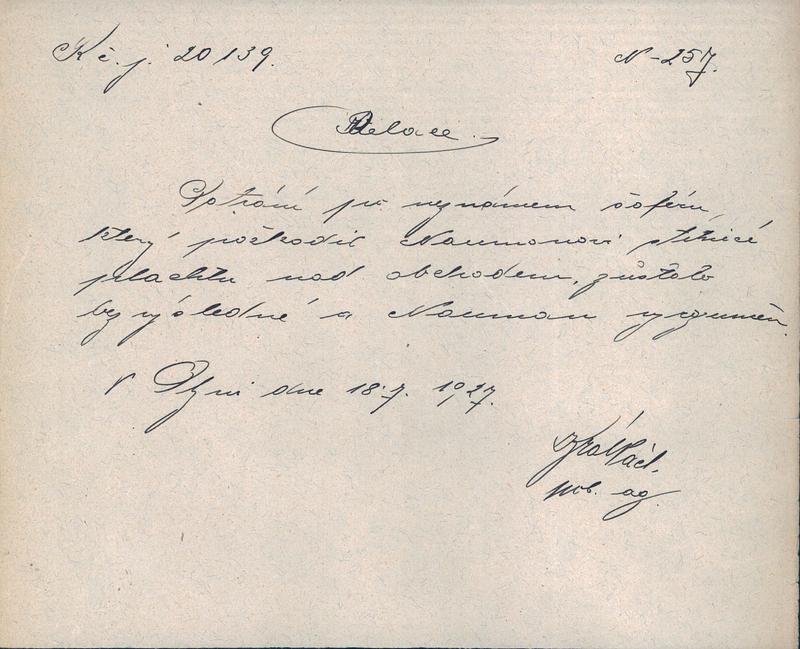 K č. j. 20139.
N-257.
Relace.
Pátrání po neznámém šoféru,
který poškodil Naumanovi stínící
plachtu nad obchodem, zůstalo
bezvýsledné a Nauman vyrozuměn.
V Plzni dne 18.7. 1927.